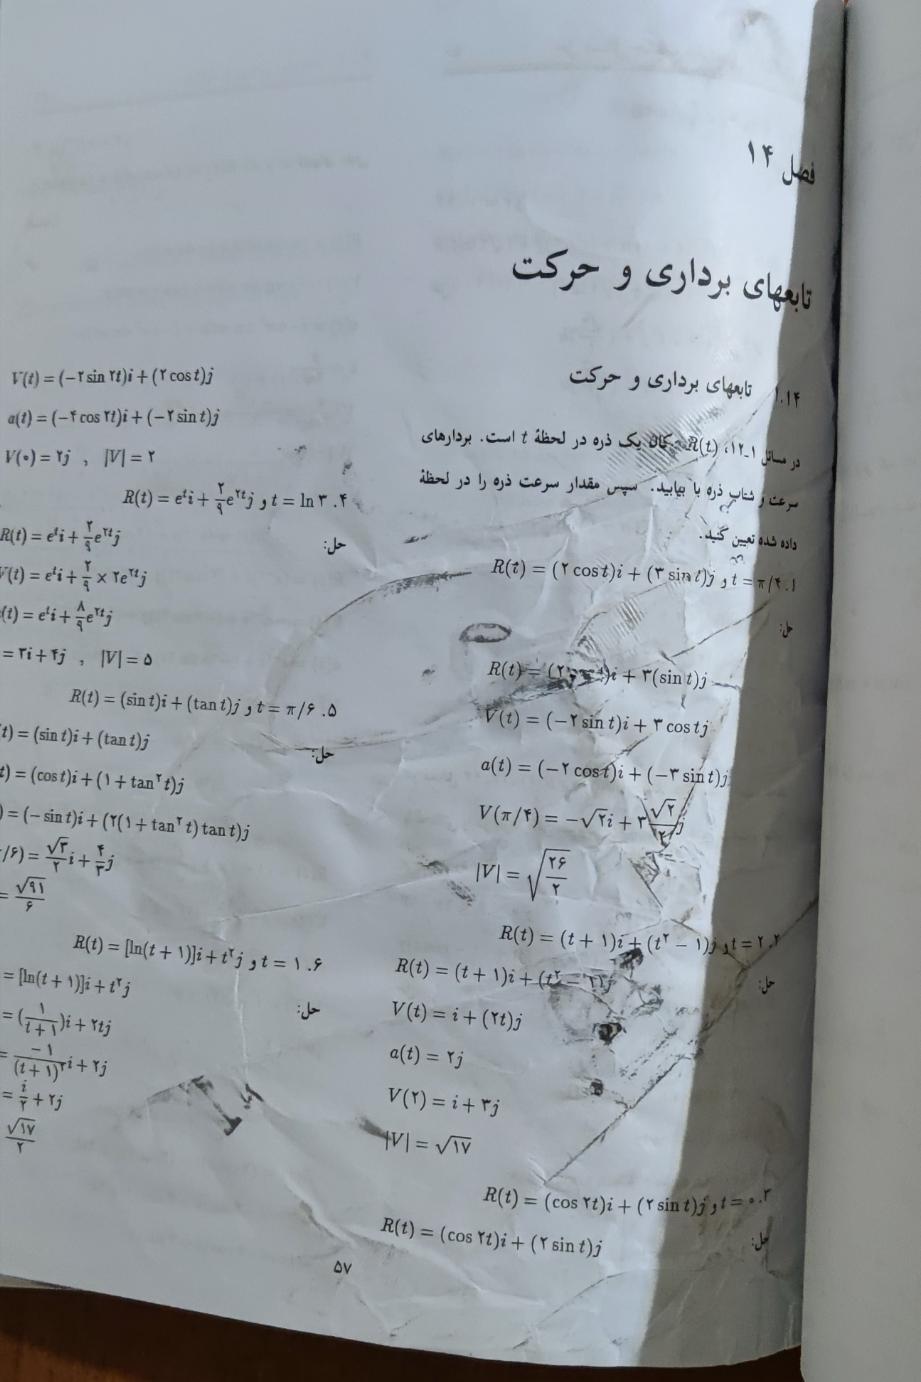 فصل ۱۴
تابعهای برداری و حرکت
۱.۱۴ تابعهای برداری و حرکت
در مسائل ۱-۱۲، R(t) مکان یک ذره در لحظهٔ t است. بردارهای
سرعت و شتاب ذره با بیابید. سپس مقدار سرعت ذره را در لحظهٔ
داده شده تعیین کنید.
۱. R(t) = (۲ cos t)i + (۳ sin t)j و t = π/۴
حل:
R(t) = (۲ t)i + ۳(sin t)j
V(t) = (−۲ sin t)i + ۳ cos tj
a(t) = (−۲ cos t)i + (−۳ sin t)j
V(π/۴) = −√۲i + ۳ √۲/۲ j
|V| = √(۲۶/۲)
۲. R(t) = (t + ۱)i + (t² − ۱)j و t = ۲
حل:
R(t) = (t + ۱)i + (t² − ۱)j
V(t) = i + (۲t)j
a(t) = ۲j
V(۲) = i + ۴j
|V| = √۱۷
۳. R(t) = (cos ۲t)i + (۲ sin t)j و t = ۰
حل:
R(t) = (cos ۲t)i + (۲ sin t)j
V(t) = (−۲ sin ۲t)i + (۲ cos t)j
a(t) = (−۴ cos ۲t)i + (−۲ sin t)j
V(۰) = ۲j , |V| = ۲
۴. R(t) = eᵗi + ۲/۹ e²ᵗj و t = ln ۳
حل:
R(t) = eᵗi + ۲/۹ e²ᵗj
V(t) = eᵗi + ۲/۹ × ۲e²ᵗj
(t) = eᵗi + ۸/۹ e²ᵗj
= ۳i + ۴j , |V| = ۵
۵. R(t) = (sin t)i + (tan t)j و t = π/۶
حل:
t) = (sin t)i + (tan t)j
t) = (cos t)i + (۱ + tan² t)j
) = (− sin t)i + (۲(۱ + tan² t) tan t)j
/۶) = √۳/۲ i + ۴/۳ j
= √۹۱/۶
۶. R(t) = [ln(t + ۱)]i + t²j و t = ۱
حل:
= [ln(t + ۱)]i + t²j
= (۱/(t + ۱))i + ۲tj
= −۱/(t + ۱)² i + ۲j
= i/۲ + ۲j
√۱۷/۲
۵۷